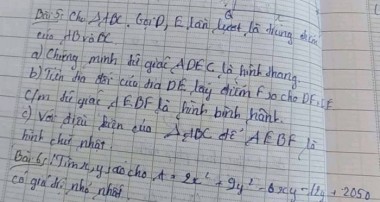 Bài 5: Cho ΔABC. Gọi D, E lần lượt là trung điểm
của AB và BC.
a) Chứng minh tứ giác ADEC là hình thang.
b) Trên tia đối của tia DE, lấy điểm F sao cho DF = DE
C/m tứ giác AEBF là hình bình hành.
c) Với điều kiện của ΔABC để AEBF là
hình chữ nhật
Bài 6: Tìm x, y sao cho A = 2x² + 9y² - 6xy - 12y + 2050
có giá trị nhỏ nhất